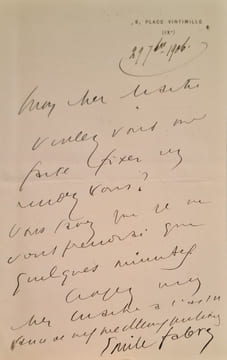 8, PLACE VINTIMILLE
(IXᵉ)
29 7bre 1906.
Mon cher Maître
Voulez vous me
faire fixer un
rendez vous?
Vous savez que je ne
vous prendrai que
quelques minutes
Croyez mon
cher Maître à l'
de mes meilleurs
Emile Fabre